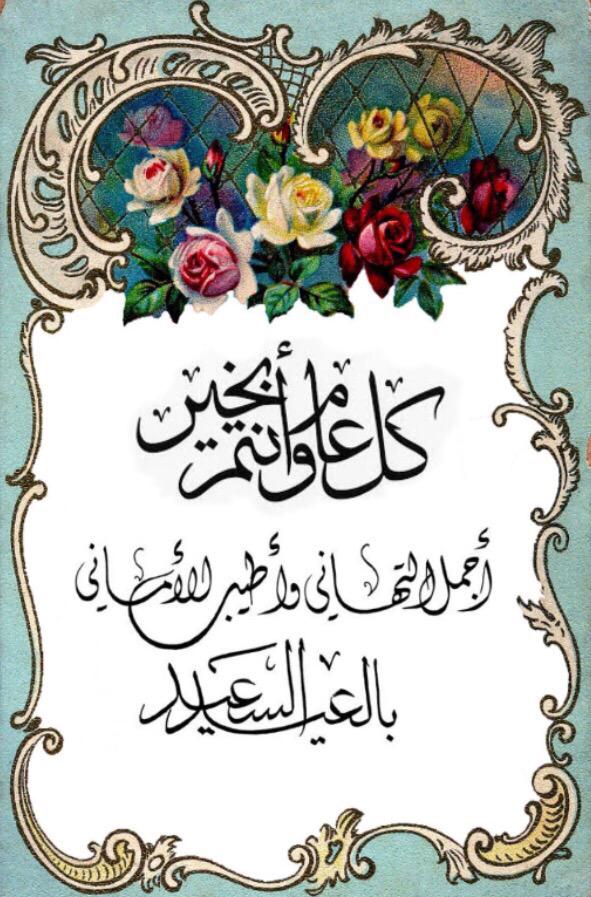 كل عام وأنتم بخير
أجمل التهاني وأطيب الأماني
بالعيد السعيد